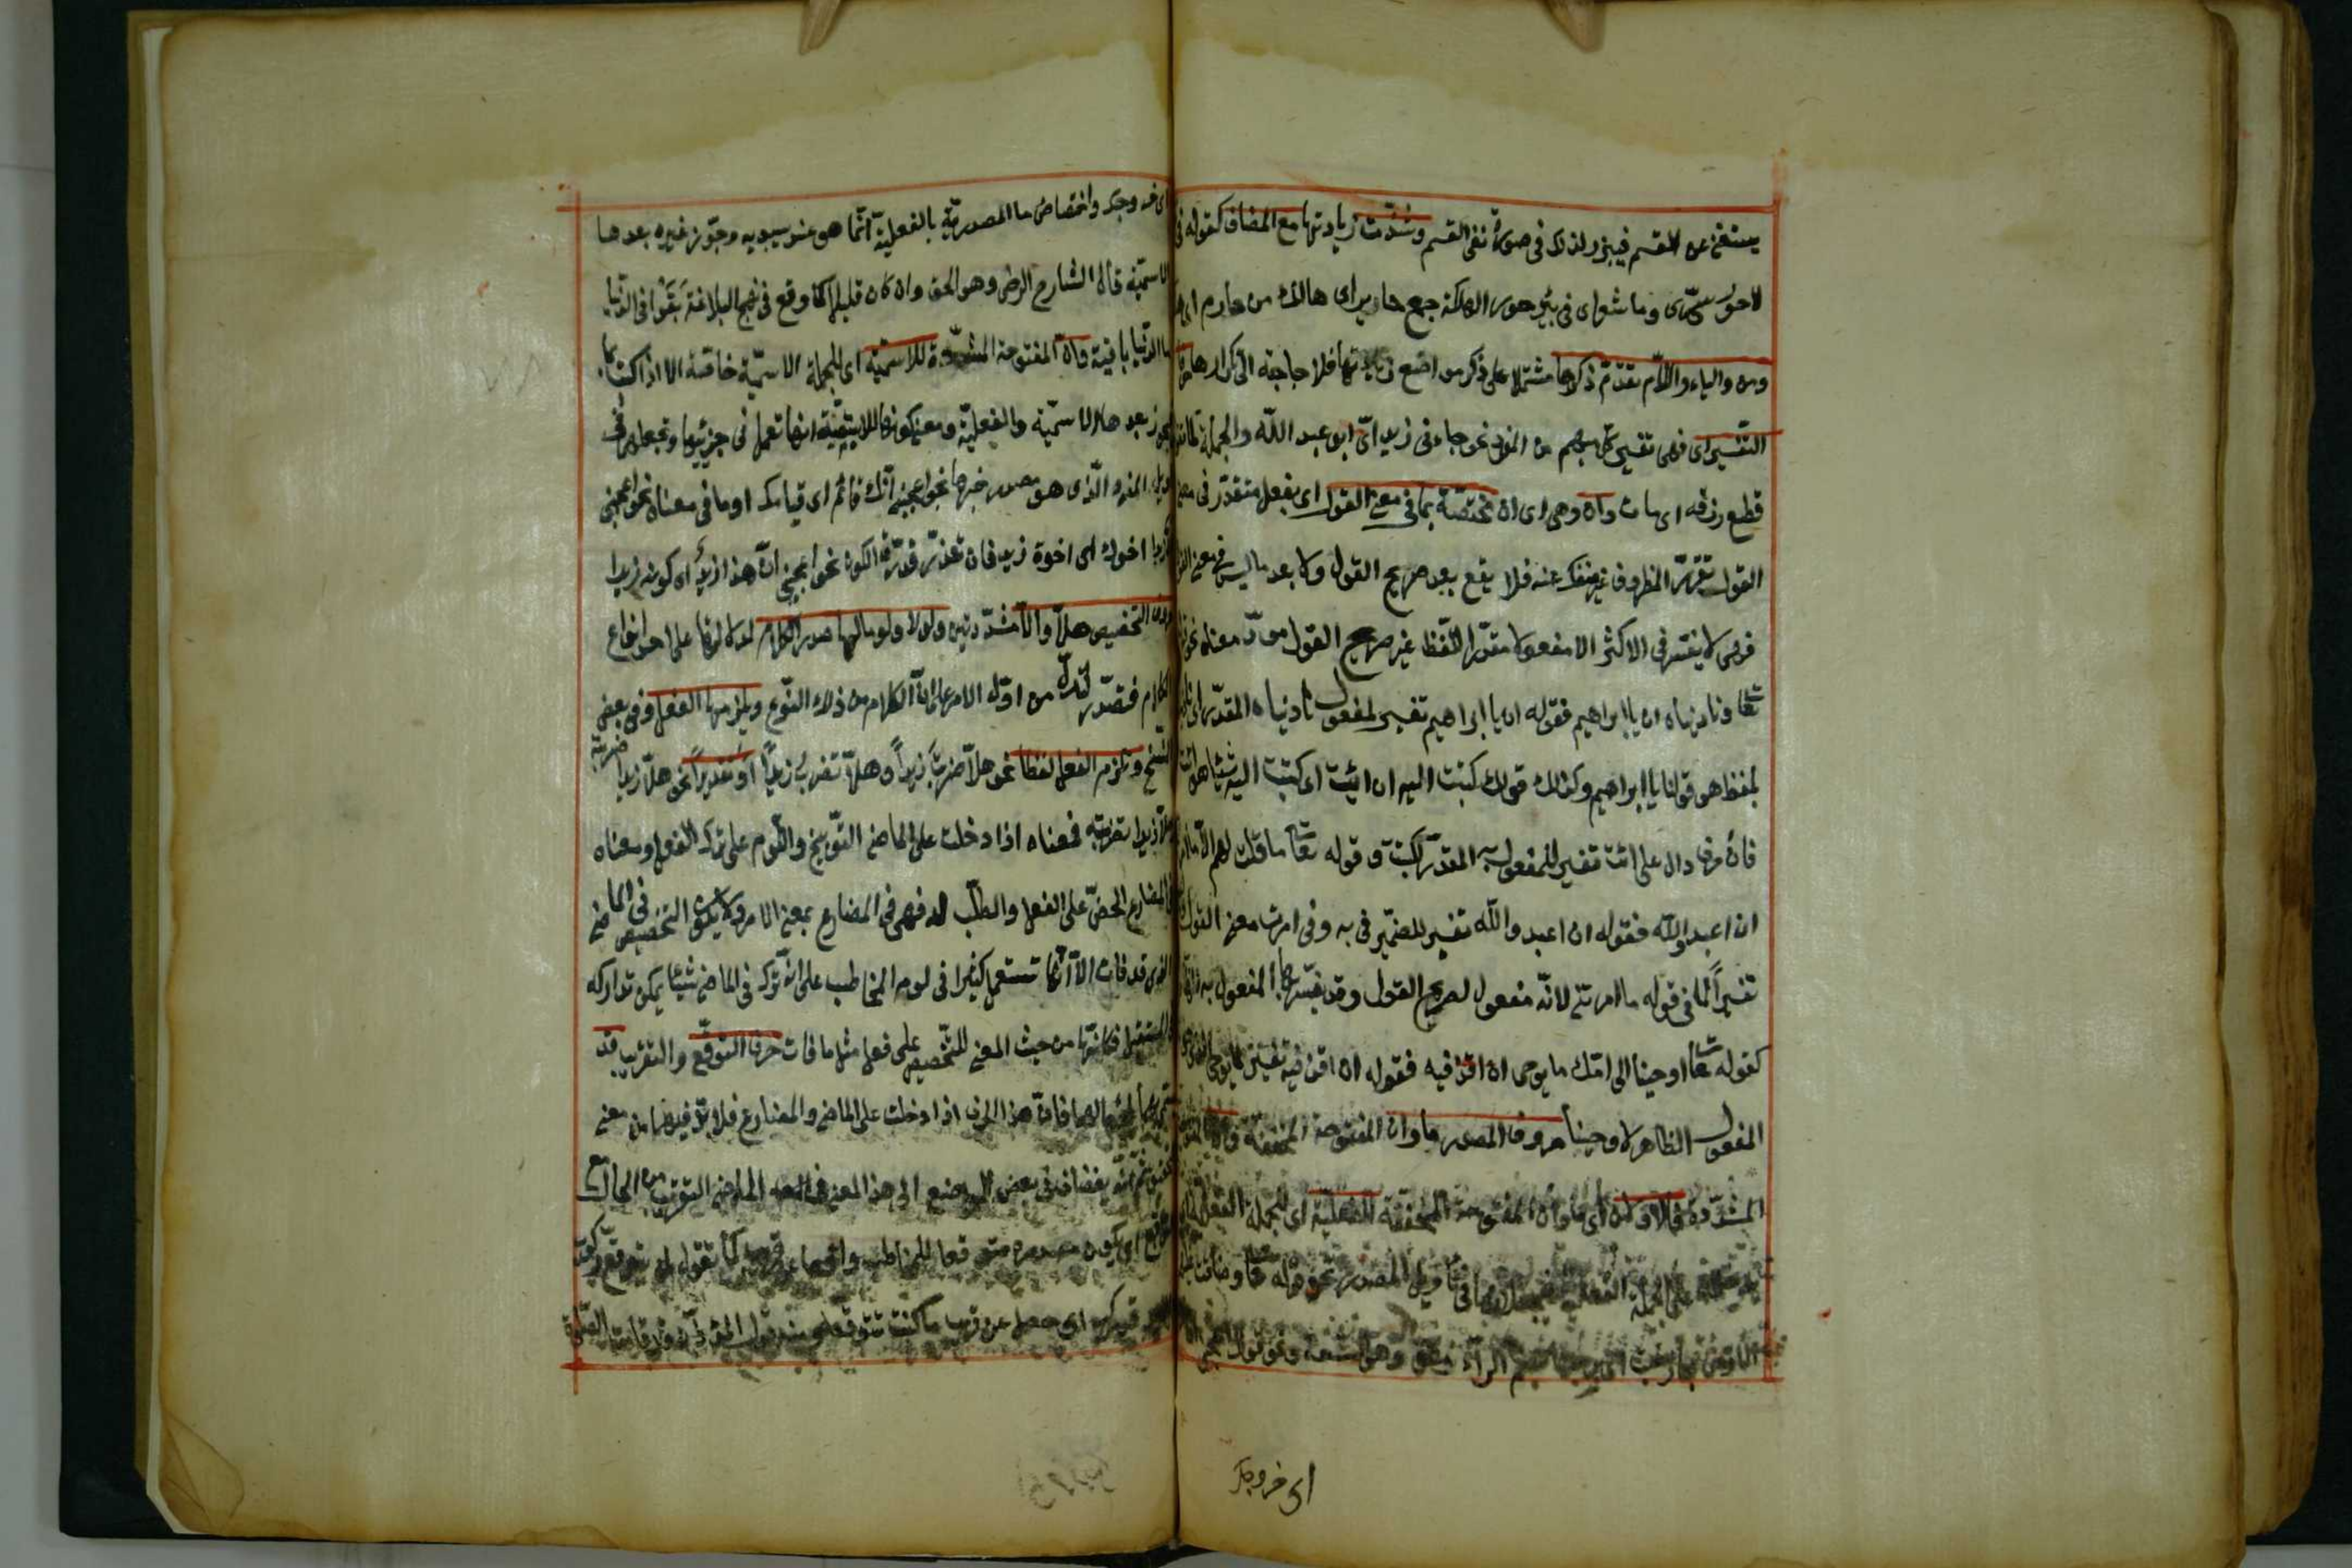 يستغنى عن القسم فيبرز ولذلك فى صورة نفى القسم وشذّت زيادتها مع المضاف كقوله فى
لا حور سرى وما شعر اى فى بئر حور الهلكة جمع حاير اى هالك من حار
ومن والباء واللّام تقدّم ذكرها مشتملا على ذكر مواضع زيادتها فلا حاجة الى تكرارها
التّفسير اى فهى تفسير كل مبهم من المفرد نحو جاءنى زيد اى ابو عبد اللّه والجملة كما تقول
قطع رزقه اى مات وان وهى اى ان مختصّة بما فى معنى القول اى بفعل متقدّر فى معنى
القول تقرّر الظروف غير منفك عنه فلا يقع بعد صريح القول ولا بعد ما ليس فيه معنى القول
فهى لا يفسّر فى الاكثر الا مفعولا مقدّرا للّفظ غير صريح القول مودّ معناه نحو قوله
تعا وناديناه ان يا ابراهيم فقوله ان يا ابراهيم تفسير لمفعول ناديناه المقدّر اى ناديناه
بلفظ هو قولنا يا ابراهيم وكذلك قولك كتبت اليه ان ائت اى كتبت اليه شيئا هو ائت
فان حرف دال على ائت تفسير للمفعول به المقدّر لكتبت وقوله تعا ما قلت لهم الّا ما امرتنى
ان اعبدوا اللّه فقوله ان اعبدوا اللّه تفسير للضمير فى به وفى امرت معنى القول
تفسيراً لما فى قوله ما امرتنى لانّه مفعول لصريح القول وقد يفسّر بها المفعول به
كقوله تعا اوحينا الى امّك ما يوحى ان اقذفيه فقوله ان اقذفيه تفسير لما يوحى
المفعول الظاهر لاوحينا حروف المصدر ما وان المفتوحة المخفّفة وانّ المفتوحة
المشدّدة فالاولان اى ما وان المفتوحة المخفّفة للفعليّة اى للجملة الفعليّة
على الجملة الفعلية فى تأويل المصدر نحو قوله تعا وضاقت عليهم
الارض بما رحبت اى برحبها بضم الراء وهو السّعة ونحو قولك اعجبنى ان
اى خروجك
اى خروجك واختصاص ما المصدريّة بالفعليّة انّما هو عند سيبويه وجوّز غيره بعدها
الاسميّة قال الشارح الرضى وهو الحق وان كان قليلا كما وقع فى نهج البلاغة بقوا فى الدّنيا
ما الدّنيا باقية وانّ المفتوحة المشدّدة للاسميّة اى للجملة الاسميّة خاصّة الا اذا كفّت بما
فيجوز بعدها الاسميّة والفعليّة ومعنى كونها للاسميّة انها تعمل فى جزئيها وتجعلهما فى
تأويل المفرد الّذى هو مصدر خبرها نحو اعجبنى انّك قائم اى قيامك او ما فى معناه نحو اعجبنى
انّ زيدا اخوك اى اخوة زيد فان تعذّر قدّرت الكون نحو اعجبنى انّ هذا زيد اى كونه زيدا
حروف التحضيض هلّا والّا مشدّدتين ولولا ولوما لها صدر الكلام لدلالتها على احد انواع
الكلام فتصدّر لتدل من اول الامر على انّ الكلام من ذلك النّوع ويلزمها الفعل وفى بعض
النسخ وتلزم الفعل لفظا نحو هلّا ضربت زيداً وهلّا تضرب زيداً او تقديراً نحو هلّا زيدا ضربته
وهلّا زيدا تضربه فمعناه اذا دخلت على الماضى التّوبيخ واللّوم على ترك الفعل ومعناه
فى المضارع الحضّ على الفعل والطلب له فهى فى المضارع بمعنى الامر ولا يكون التحضيض فى الماضى
الذى قد فات الّا انّها تستعمل كثيرا فى لوم المخاطب على انّه ترك فى الماضى شيئا يمكن تداركه
فى المستقبل فكانّها من حيث المعنى للتّحضيض على فعل مثل ما فات حرف التوقّع والتقريب قد
لمجيئها لهما فانّ هذا الحرف اذا دخلت على الماضى والمضارع فلا بدّ فيها من معنى
التحقيق ثمّ انّه يضاف فى بعض المواضع الى هذا المعنى فى الماضى التقريب من الحال مع
التوقّع اى يكون مصدره متوقعا للمخاطب واقعا عن قريب كما تقول لمن يتوقّع ركوب
الامير قد ركب اى حصل عن قريب ما كنت تتوقّعه ومنه قول المؤذّن قد قامت الصّلوة